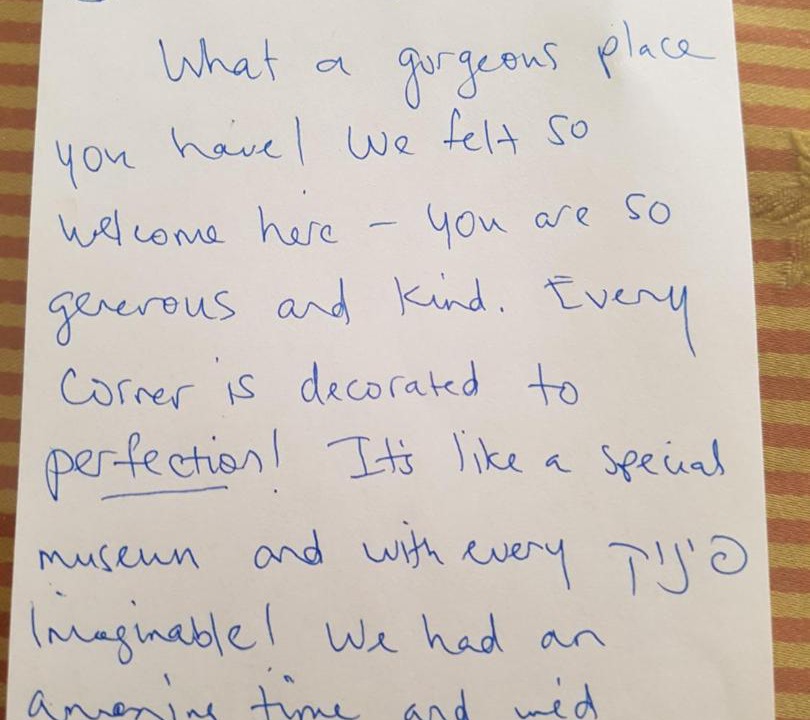 What a gorgeous place
you have! We felt so
welcome here - you are so
generous and kind. Every
corner is decorated to
perfection! It's like a special
museum and with every פינוק
imaginable! We had an
amazing time and we'd